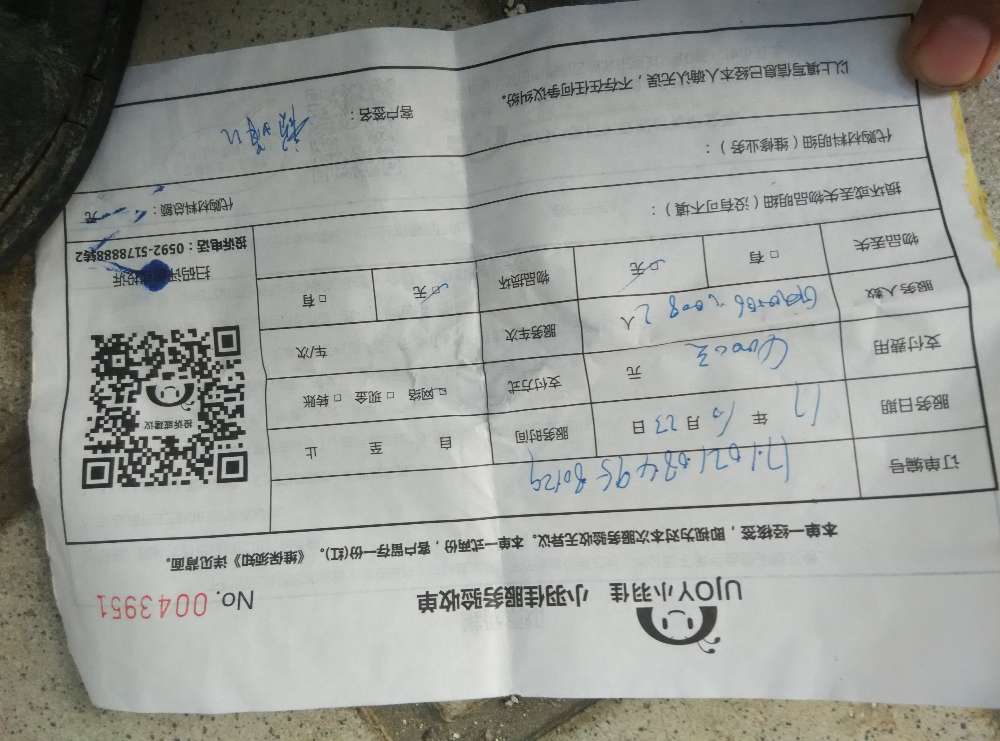 UJOY小羽佳 小羽佳服务验收单 No. 0043951
本单一经核签，即视为对本次服务验收无异议。本单一式两份，客户留存一份(红)。《维保须知》详见背面。
订单编号
服务日期 17 年 10 月 23 日 服务时间 自 至 止
支付费用 元 支付方式 □网络 □现金 □转账
服务人数 人 服务车次 车/次
物品丢失 □有 □无 物品损坏 □无 □有
投诉或建议
扫码评
投诉
投诉电话：0592-5178888转2
损坏或丢失物品明细（没有可不填）：
代购材料明细（维修业务）：
代购材料总额： 元
以上填写信息已经本人确认无误，不存在任何争议纠纷。
客户签名：